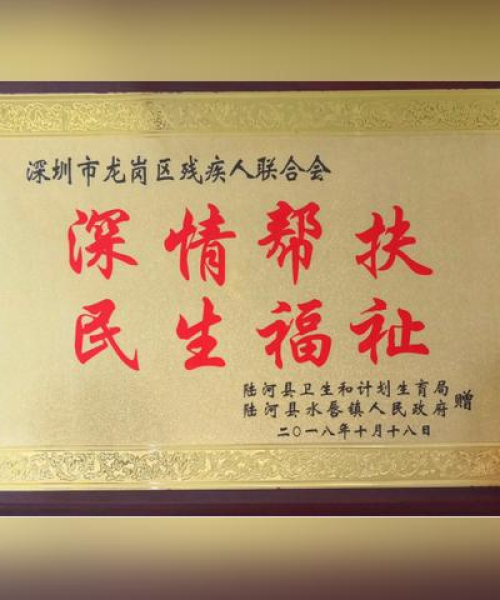 深圳市龙岗区残疾人联合会
深情帮扶
民生福祉
陆河县卫生和计划生育局
陆河县水唇镇人民政府 赠
二〇一八年十月十八日